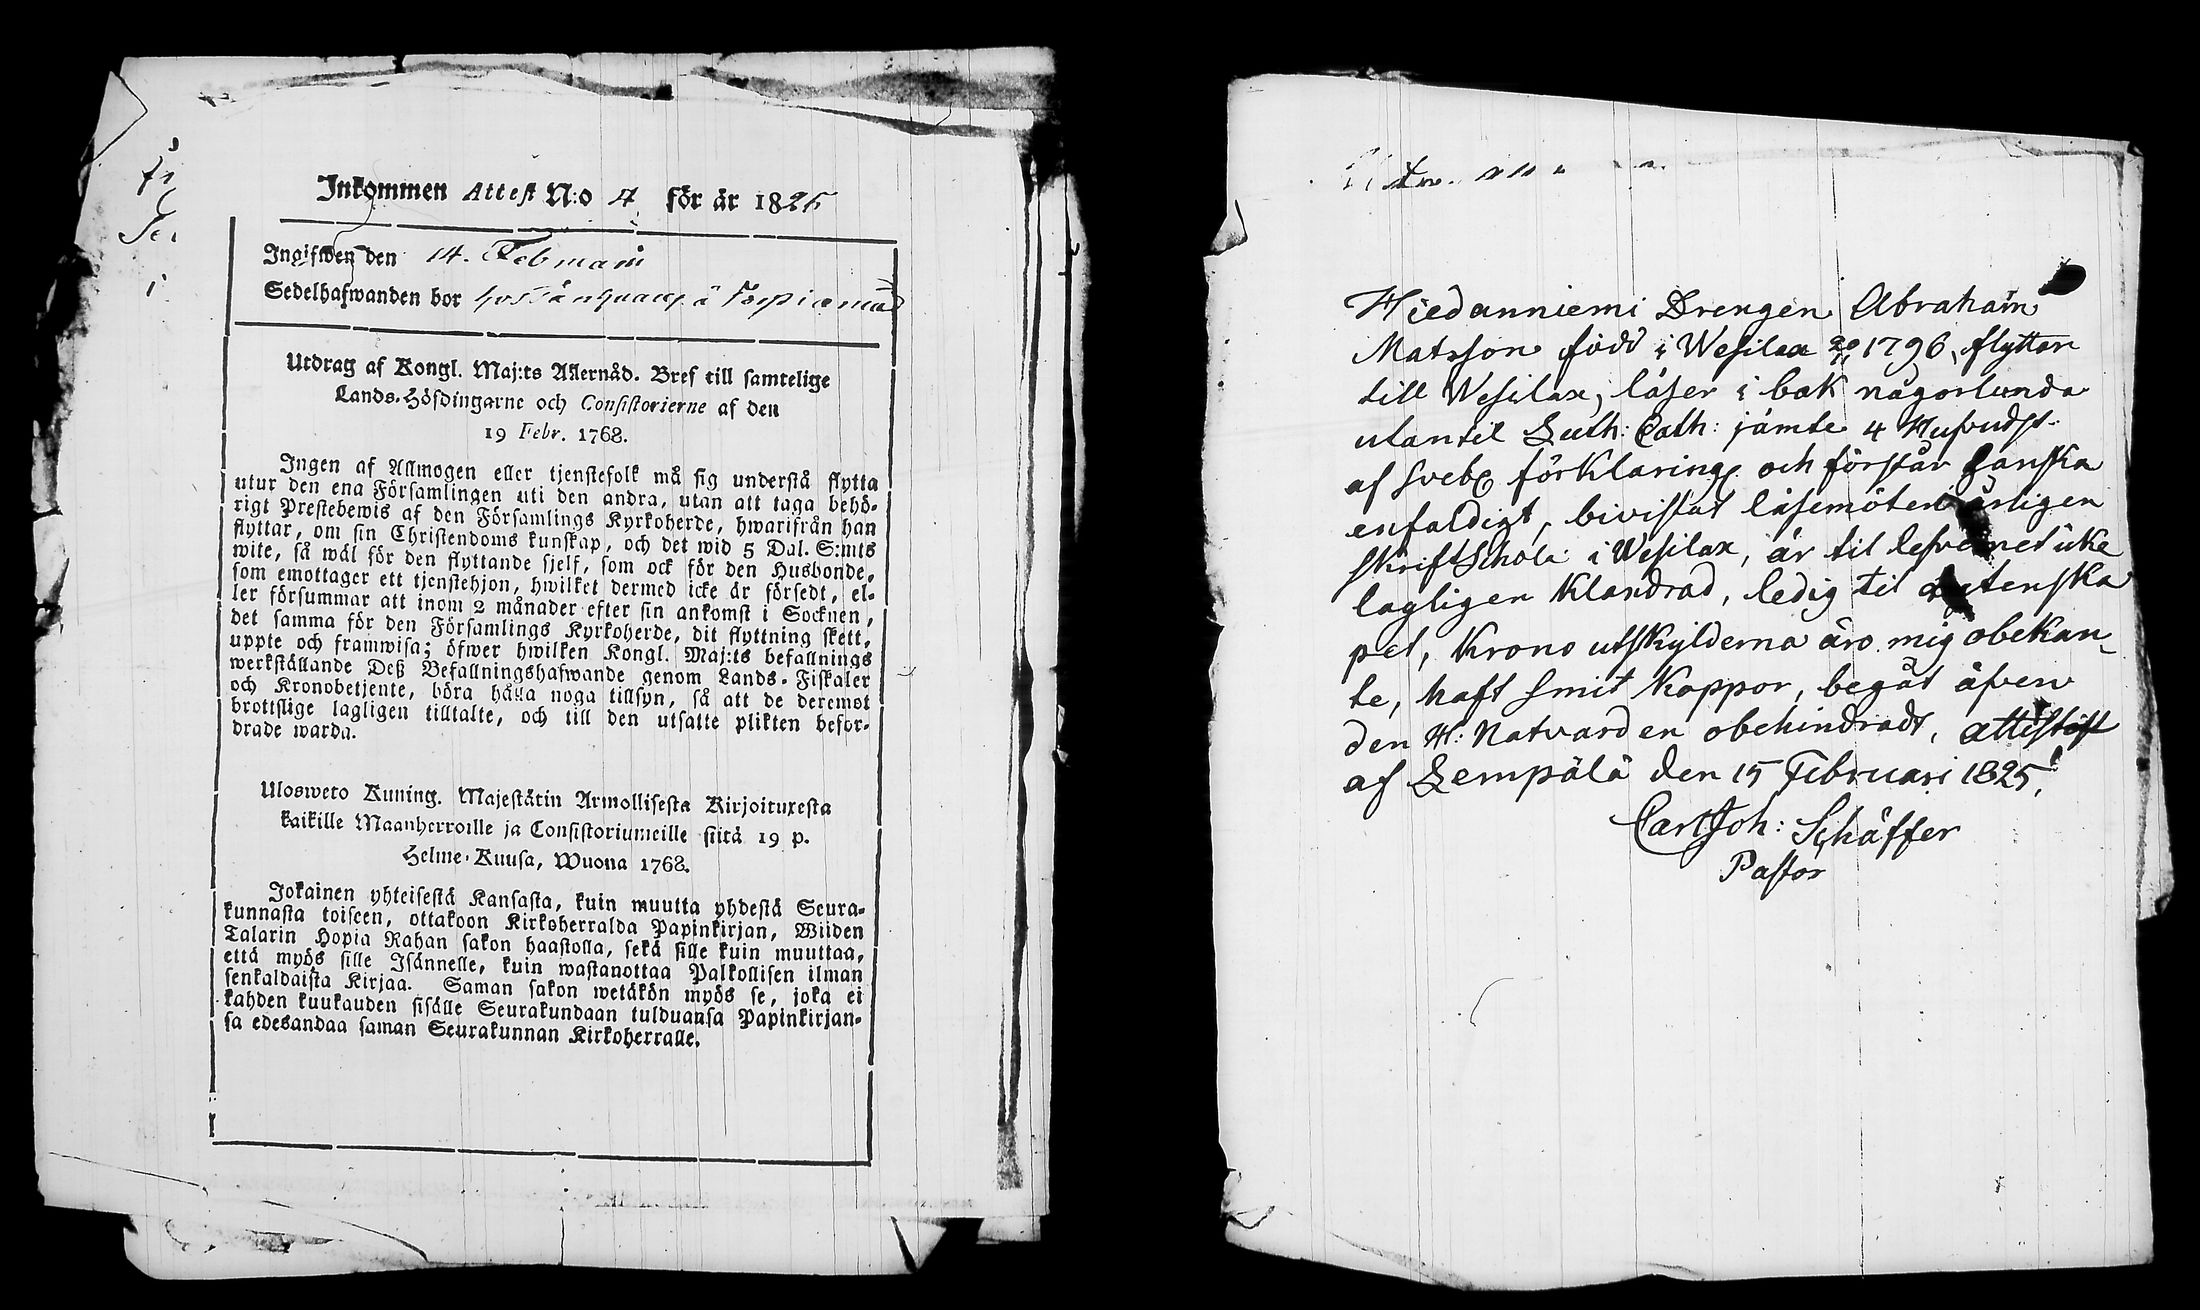 Inkommen Attest N:o 4 för år 1825
Ingifwen den 14. Februarii
Sedelhafwanden bor
Utdrag af Kongl. Maj:ts Allernåd. Bref till samtelige
Lands-Höfdingarne och Consistorierne af den
19 Febr. 1768.
Ingen af Allmogen eller tjenstefolk må sig understå flytta
utur den ena Församlingen uti den andra, utan att taga behö-
rigt Prestebewis af den Församlings Kyrkoherde, hwarifrån han
flyttar, om sin Christendoms kunskap, och det wid 5 Dal. S:mts
wite, så wäl för den flyttande sjelf, som ock för den Husbonde,
som emottager ett tjenstehjon, hwilket dermed icke är försedt, el-
ler försummar att inom 2 månader efter sin ankomst i Socknen,
det samma för den Församlings Kyrkoherde, dit flyttning skett,
uppte och framwisa; öfwer hwilken Kongl. Maj:ts befallnings
werkställande Deß Befallningshafwande genom Lands-Fiskaler
och Kronobetjente, böra hålla noga tillsyn, så att de deremot
brottslige lagligen tilltalte, och till den utsatte plikten befor-
drade warda.
Ulosweto Kuning. Majestätin Armollisesta Kirjoituxesta
kaikille Maanherroille ja Consistoriumeille siitä 19 p.
Helme-Kuusa, Wuona 1768.
Jokainen yhteisestä Kansasta, kuin muutta yhdestä Seura-
kunnasta toiseen, ottakoon Kirkoherralda Papinkirjan, Wiiden
Talarin Hopia Rahan sakon haastolla, sekä sille kuin muuttaa,
että myös sille Isännelle, kuin wastanottaa Palkollisen ilman
senkaldaista Kirjaa. Saman sakon wetäkön myös se, joka ei
kahden kuukauden sisälle Seurakundaan tulduansa Papinkirjan-
sa edesandaa saman Seurakunnan Kirkoherralle.
Hiedanniemi Drengen Abraham
Matsson född i Wesilax 20/11 1796, flyttar
till Wesilax, läser i bok någorlunda
utantil Luth: Cath: jämte 4 Hufvudst.
af Sveb förklaring och förstår ganska
enfaldigt, bivistat läsemöten årligen
Skriftschola i Wesilax, är til lefvernet icke
lagligen klandrad, ledig til ägtenska
pet, Krono utskylderna äro mig obekan-
te, haft Smit Koppor, begåt äfven
den H: Natvarden obehindradt,
af Lempälä den 15 Februari 1825,
Carl Joh: Schäffer
Pastor